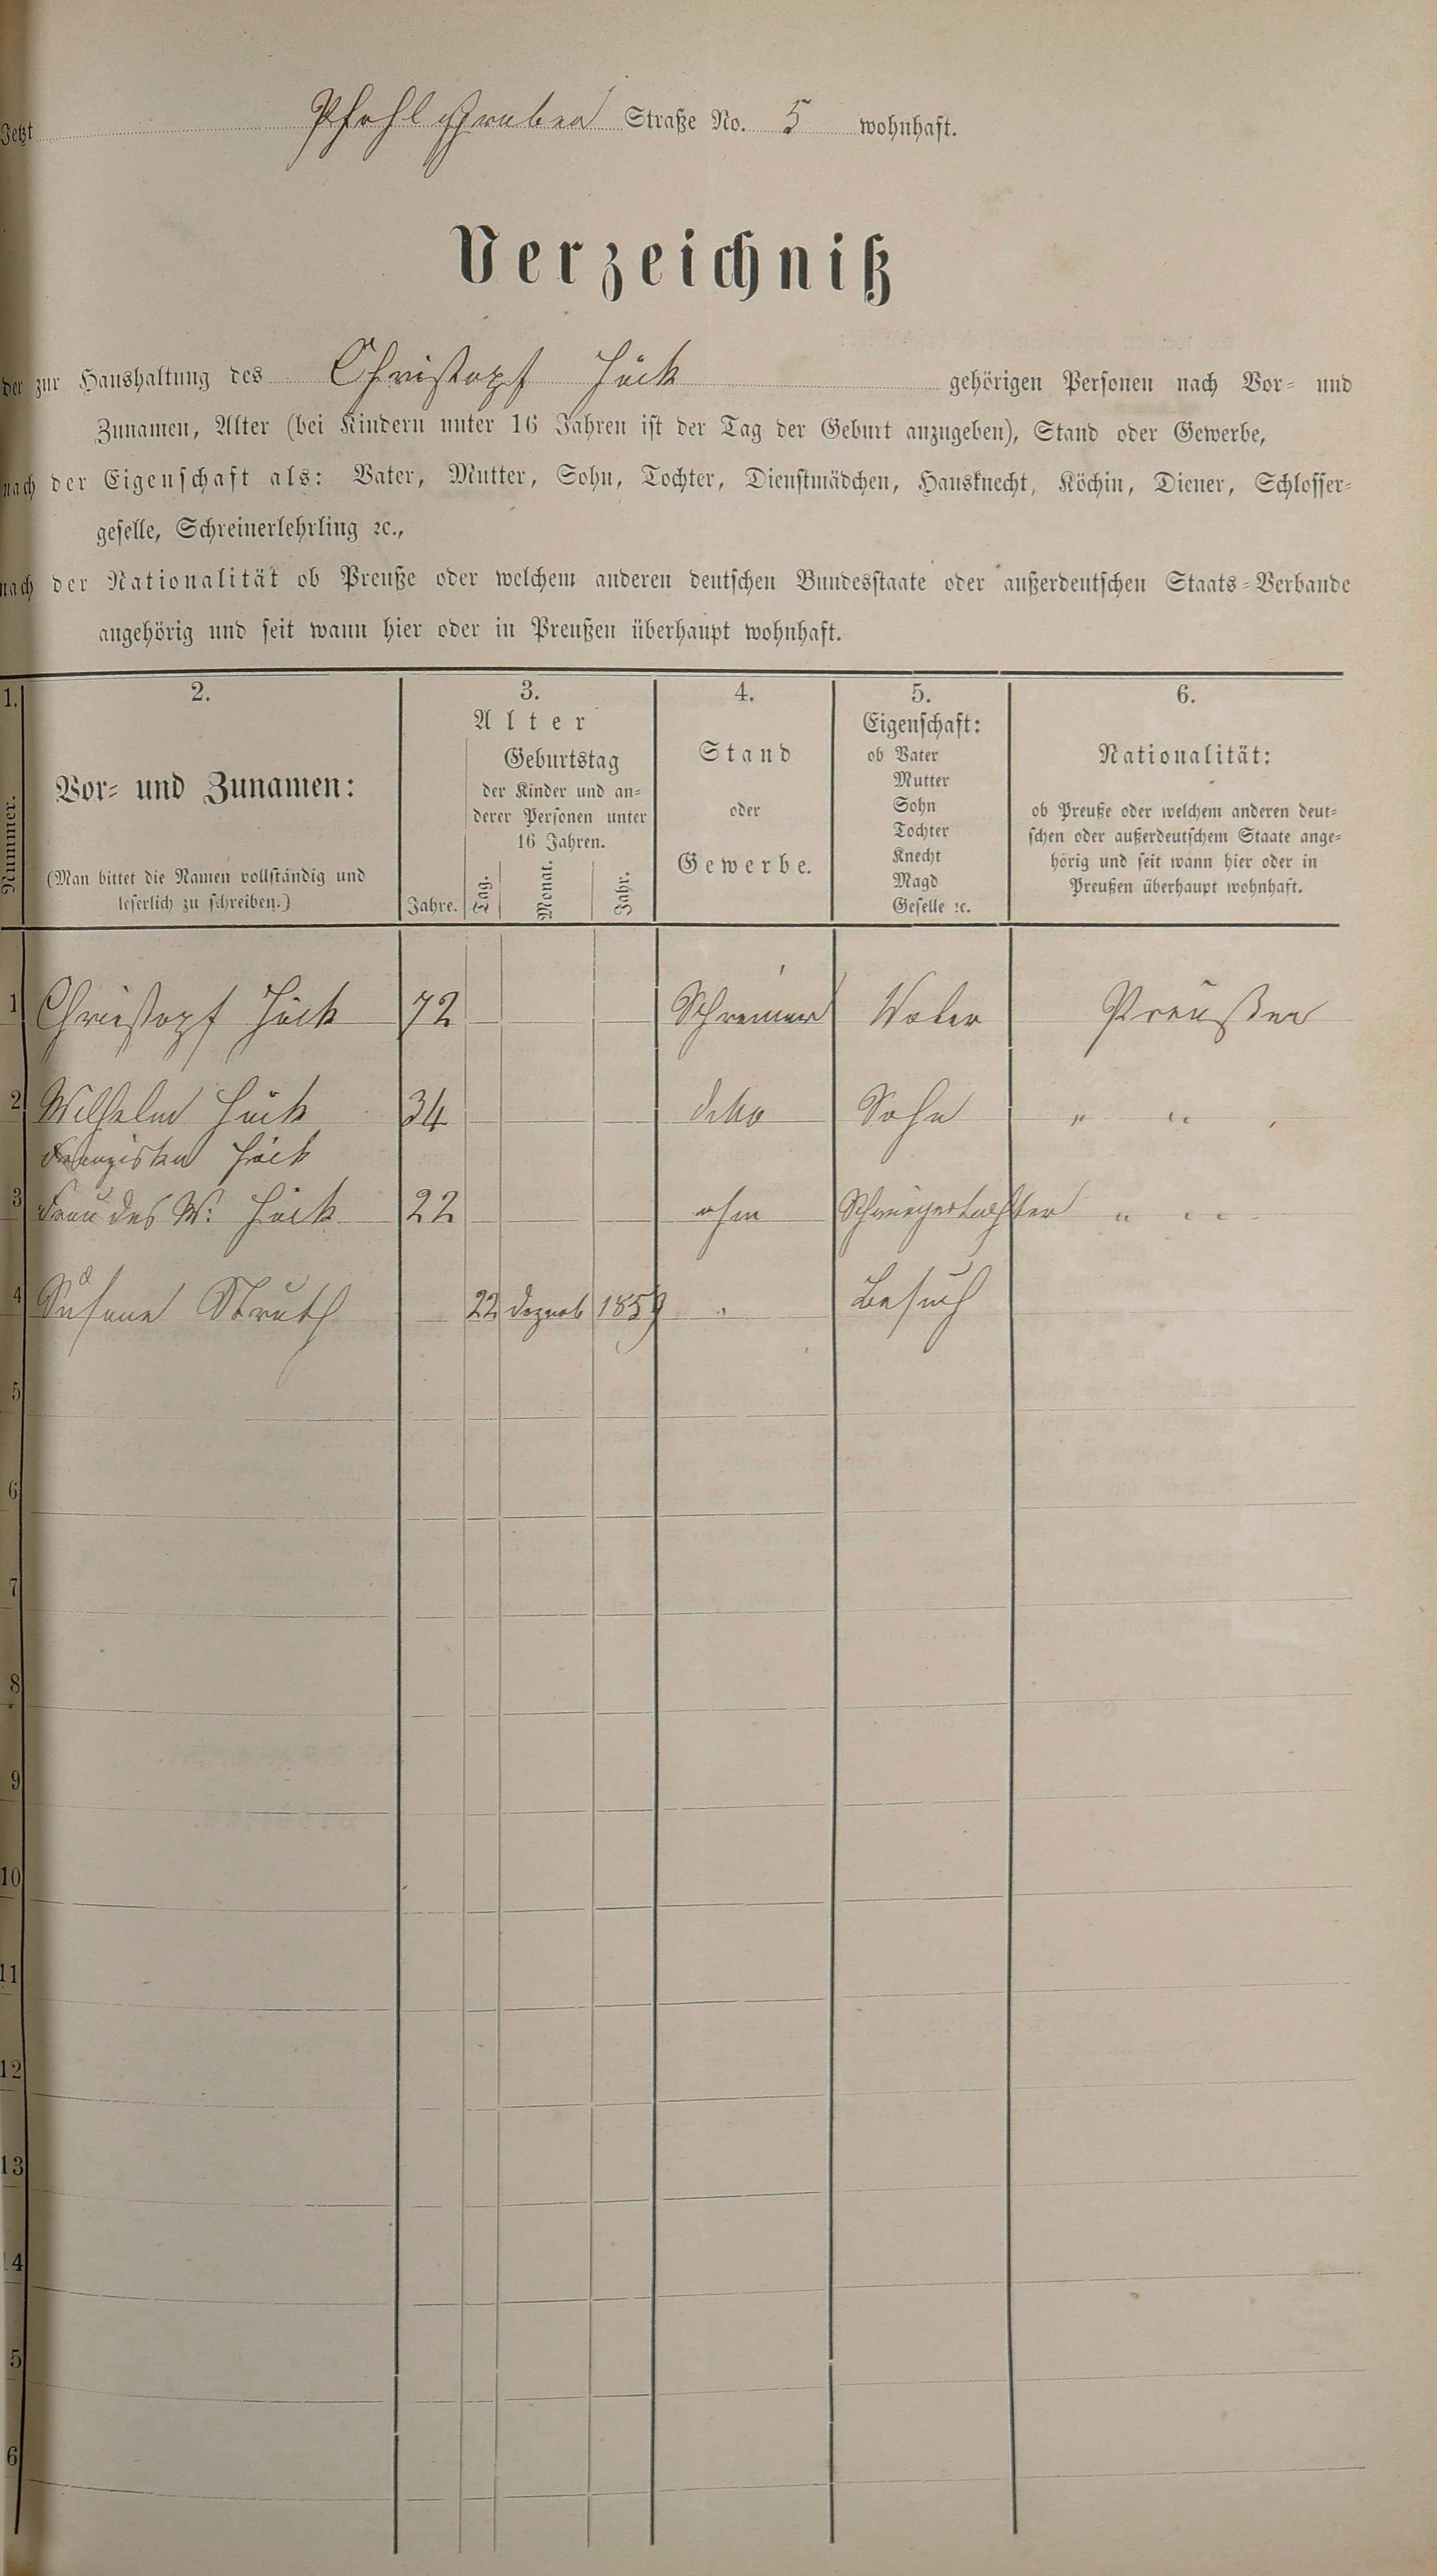 Jetzt Pfahlgraben Straße No. 5 wohnhaft.
Verzeichniß
der zur Haushaltung des Christopf Hück gehörigen Personen nach Vor- und
Zunamen, Alter (bei Kindern unter 16 Jahren ist der Tag der Geburt anzugeben), Stand oder Gewerbe,
nach der Eigenschaft als: Vater, Mutter, Sohn, Tochter, Dienstmädchen, Hausknecht, Köchin, Diener, Schlosser-
geselle, Schreinerlehrling ꝛc.,
nach der Nationalität ob Preuße oder welchem anderen deutschen Bundesstaate oder außerdeutschen Staats-Verbande
angehörig und seit wann hier oder in Preußen überhaupt wohnhaft.
1.
Nummer.
2.
Vor- und Zunamen:
(Man bittet die Namen vollständig und
leserlich zu schreiben.)
3.
Alter
Jahre.
Geburtstag
der Kinder und an-
derer Personen unter
16 Jahren.
Tag. Monat. Jahr.
4.
Stand
oder
Gewerbe.
5.
Eigenschaft:
ob Vater
Mutter
Sohn
Tochter
Knecht
Magd
Geselle ꝛc.
6.
Nationalität:
ob Preuße oder welchem anderen deut-
schen oder außerdeutschem Staate ange-
hörig und seit wann hier oder in
Preußen überhaupt wohnhaft.
1 Christopf Hück 72 Schreiner Vater Preußen
2 Wilhelm Hück 34 detto Sohn " "
Franziska Hück
3 Frau des W: Hück 22 ohn Schwiegertochter " "
4 Susana Struth 22 Dezmb 1859 " Besuch
5
6
7
8
9
10
11
12
13
14
5
6